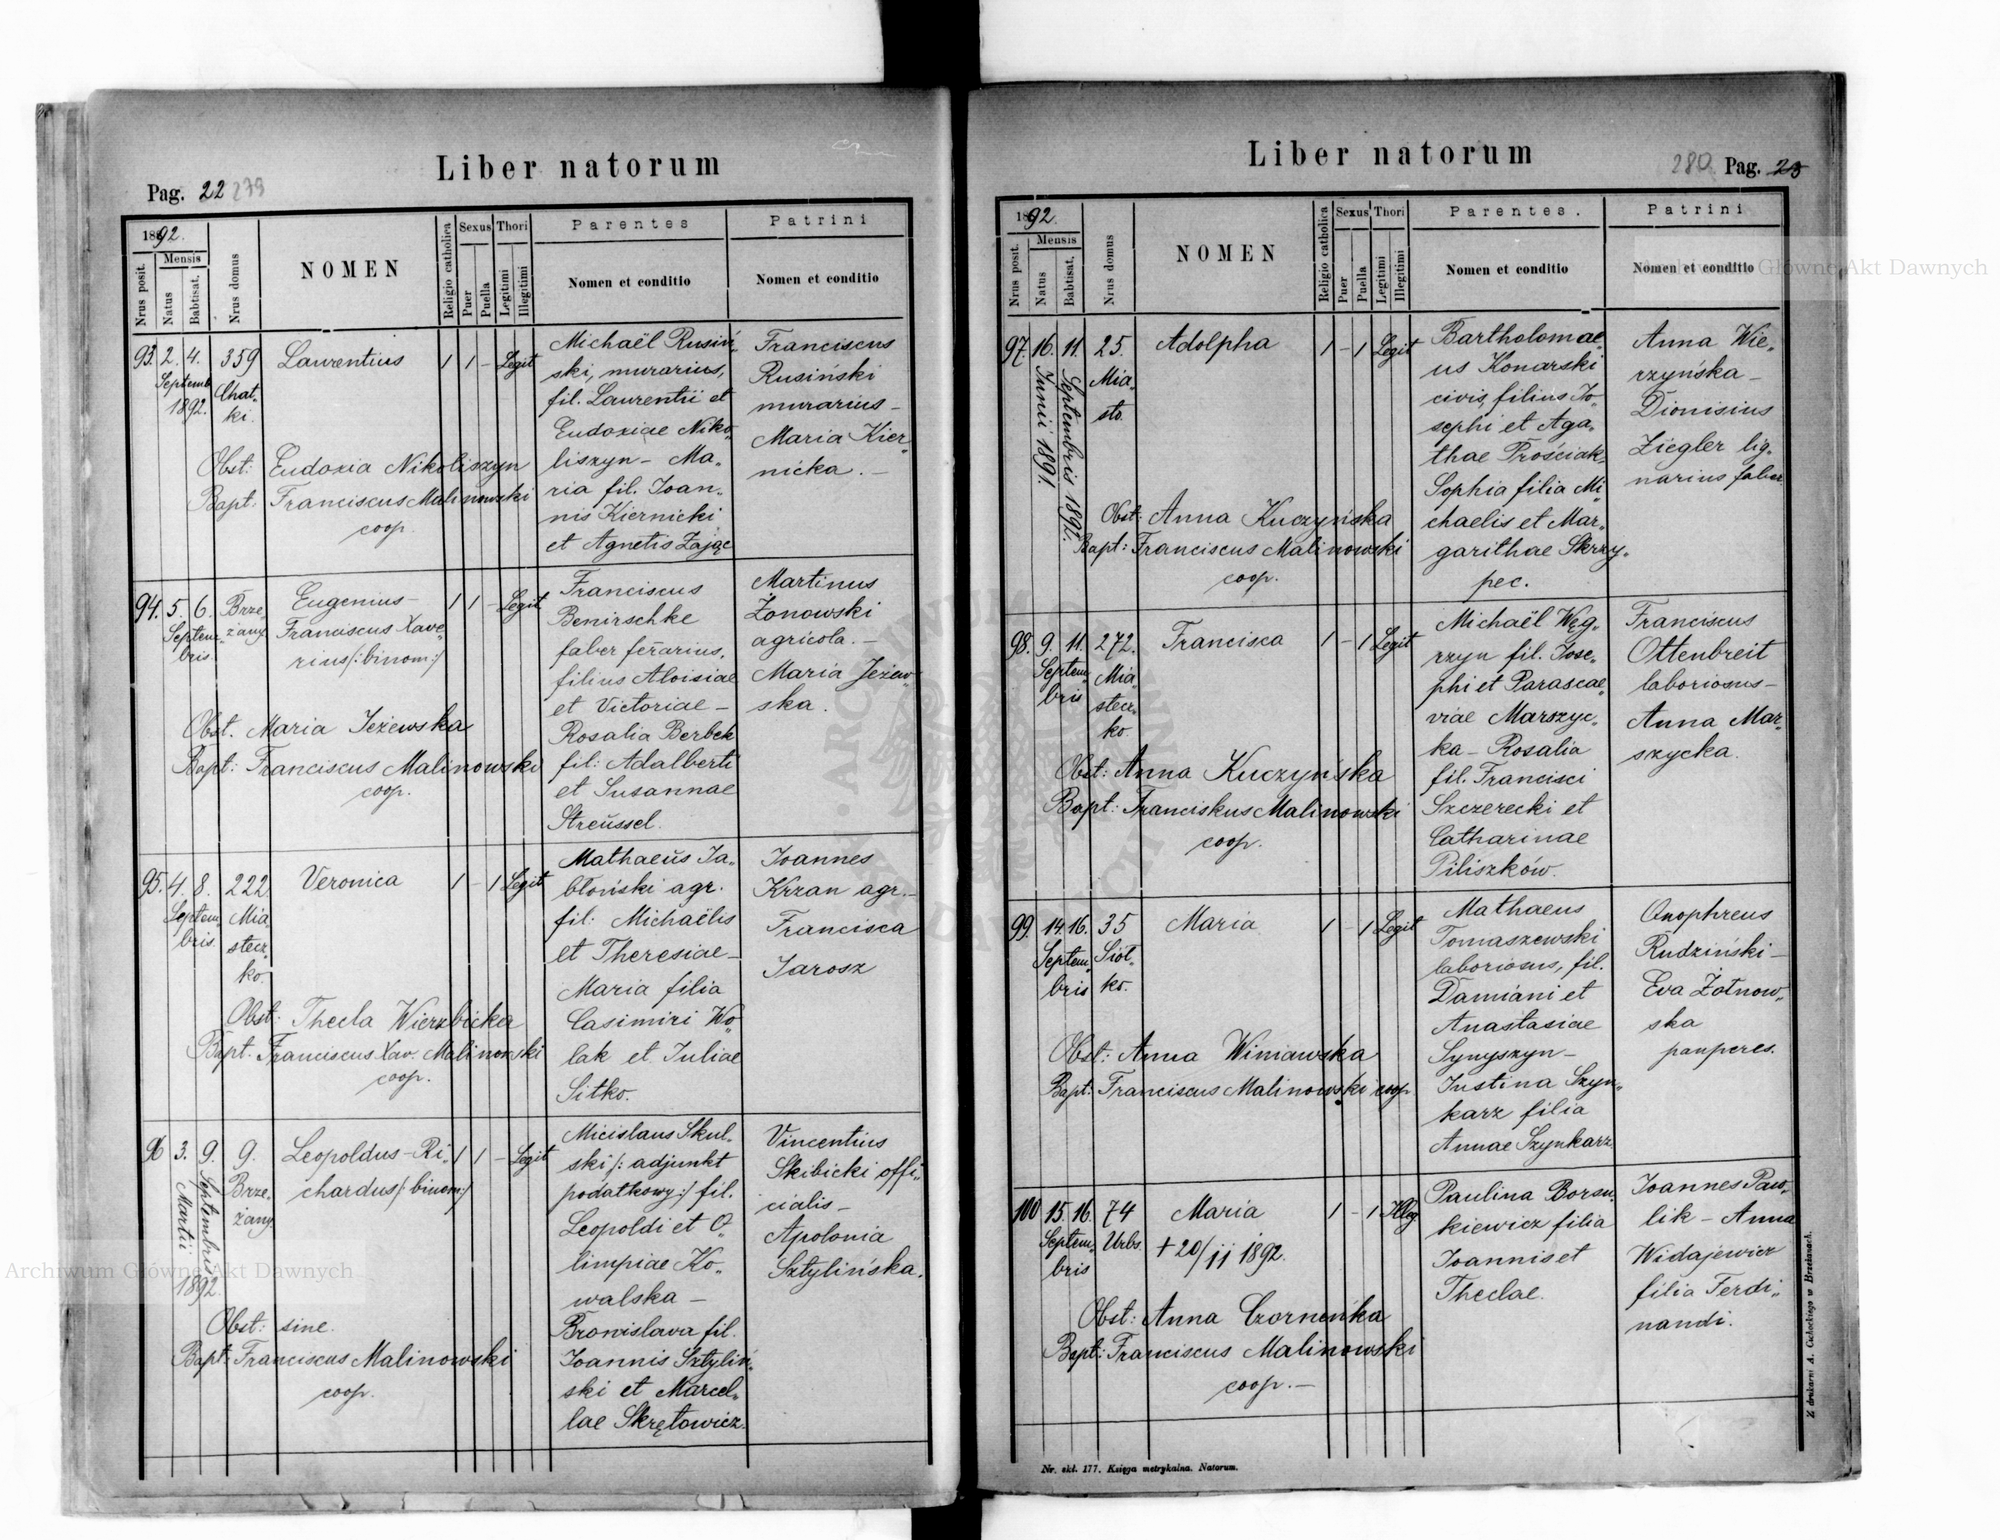 Liber natorum
Pag. 22 279
1892.
Nrus posit.
Mensis
Natus
Babtisat.
Nrus domus
NOMEN
Religio catholica
Sexus
Puer
Puella
Thori
Legitimi
Illegitimi
Parentes
Nomen et conditio
Patrini
Nomen et conditio
93. 2. 4. 359 Laurentius 1 1 - Legit
Septemb Chat-
1892. ki.
Obst: Eudoxia Nikoliszyn
Bapt. Franciscus Malinowski
coop.
Michaël Rusiń-
ski, murarius,
fil. Laurentii et
Eudoxiae Niko-
liszyn - Ma-
ria fil. Joan-
nis Kiernicki
et Agnetis Zając
Franciscus
Rusiński
murarius -
Maria Kier-
nicka. -
94. 5. 6. Brze- Eugenius - 1 1 - Legit.
Septem- żany Franciscus Xave-
bris rius /: binom :/
Obst. Maria Jeżewska
Bapt: Franciscus Malinowski
coop.
Franciscus
Benirschke
faber ferrarius,
filius Aloisiae
et Victoriae -
Rosalia Berbek
fil: Adalberti
et Susannae
Streüssel.
Martinus
Żonowski
agricola. -
Maria Jeżew-
ska.
95. 4. 8. 222 Veronica 1 - 1 Legit
Septem- Mia-
bris stecz-
ko
Obst: Thecla Wierzbicka
Bapt. Franciscus Xav. Malinowski
coop.
Mathaeŭs Ja-
błoński agr.
fil: Michaëlis
et Theresiae -
Maria filia
Casimiri Wo-
lak et Juliae
Sitko.
Joannes
Krzan agr. -
Francisca
Jarosz
96 3. 9. 9. Leopoldus - Ri- 1 1 - Legit
Martii Septembris Brze- chardus /: binom :/
1892. żany
Obst: sine.
Bapt: Franciscus Malinowski
coop.
Micislaus Skul-
ski /: adjunkt
podatkowy :/ fil.
Leopoldi et O-
limpiae Ko-
walska -
Bronislava fil.
Joannis Sztyliń-
ski et Marcel-
lae Skrętowicz.
Vincentius
Skibicki offi-
cialis -
Apolonia
Sztylińska.
Liber natorum
280 Pag. 23
1892.
Nrus posit.
Mensis
Natus
Babtisat.
Nrus domus
NOMEN
Religio catholica
Sexus
Puer
Puella
Thori
Legitimi
Illegitimi
Parentes.
Nomen et conditio
Patrini
Nomen et conditio
97. 16. 11. 25. Adolpha 1 - 1 Legit
Junii 1891. Septembris 1892. Mia-
sto.
Obst: Anna Kuczyńska
Bapt: Franciscus Malinowski
coop.
Bartholomae-
us Konarski
civis, filius Jo-
sephi et Aga-
thae Prościak -
Sophia filia Mi-
chaelis et Mar-
garithae Skrzy-
pec.
Anna Wie-
rzyńska -
Dionisius
Ziegler lig-
narius faber.
98. 9. 11. 272. Francisca 1 - 1 Legit
Septem- Mia-
bris stecz-
ko.
Obst: Anna Kuczyńska
Bapt: Franciskus Malinowski
coop.
Michaël Węg-
rzyn fil. Jose-
phi et Parascae-
viae Marszyc-
ka - Rosalia
fil. Francisci
Szczerecki et
Catharinae
Piliszków.
Franciscus
Ottenbreit
laboriosus -
Anna Mar-
szycka.
99. 14. 16. 35 Maria 1 - 1 Legit
Septem- Siół-
bris ko.
Obst: Anna Winiawska
Bapt: Franciscus Malinowski coop.
Mathaeus
Tomaszewski
laboriosus, fil.
Damiani et
Anastasiae
Synyszyn -
Justina Szyn-
karz filia
Annae Szynkarz
Onophreus
Rudziński -
Eva Żotnow-
ska
pauperes.
100 15. 16. 74 Maria 1 - 1 Illeg
Septem- Urbs. + 20/11 1892.
bris
Obst: Anna Czorneńka
Bapt: Franciscus Malinowski
coop. -
Paulina Borsu-
kiewicz filia
Joannis et
Theclae.
Joannes Paw-
lik - Anna
Widajewicz
filia Ferdi-
nandi.
Nr. skł. 177. Księga metrykalna. Natorum.
Z drukarni A. Cichockiego w Brzeżanach.
Archiwum Główne Akt Dawnych
Główne Akt Dawnych